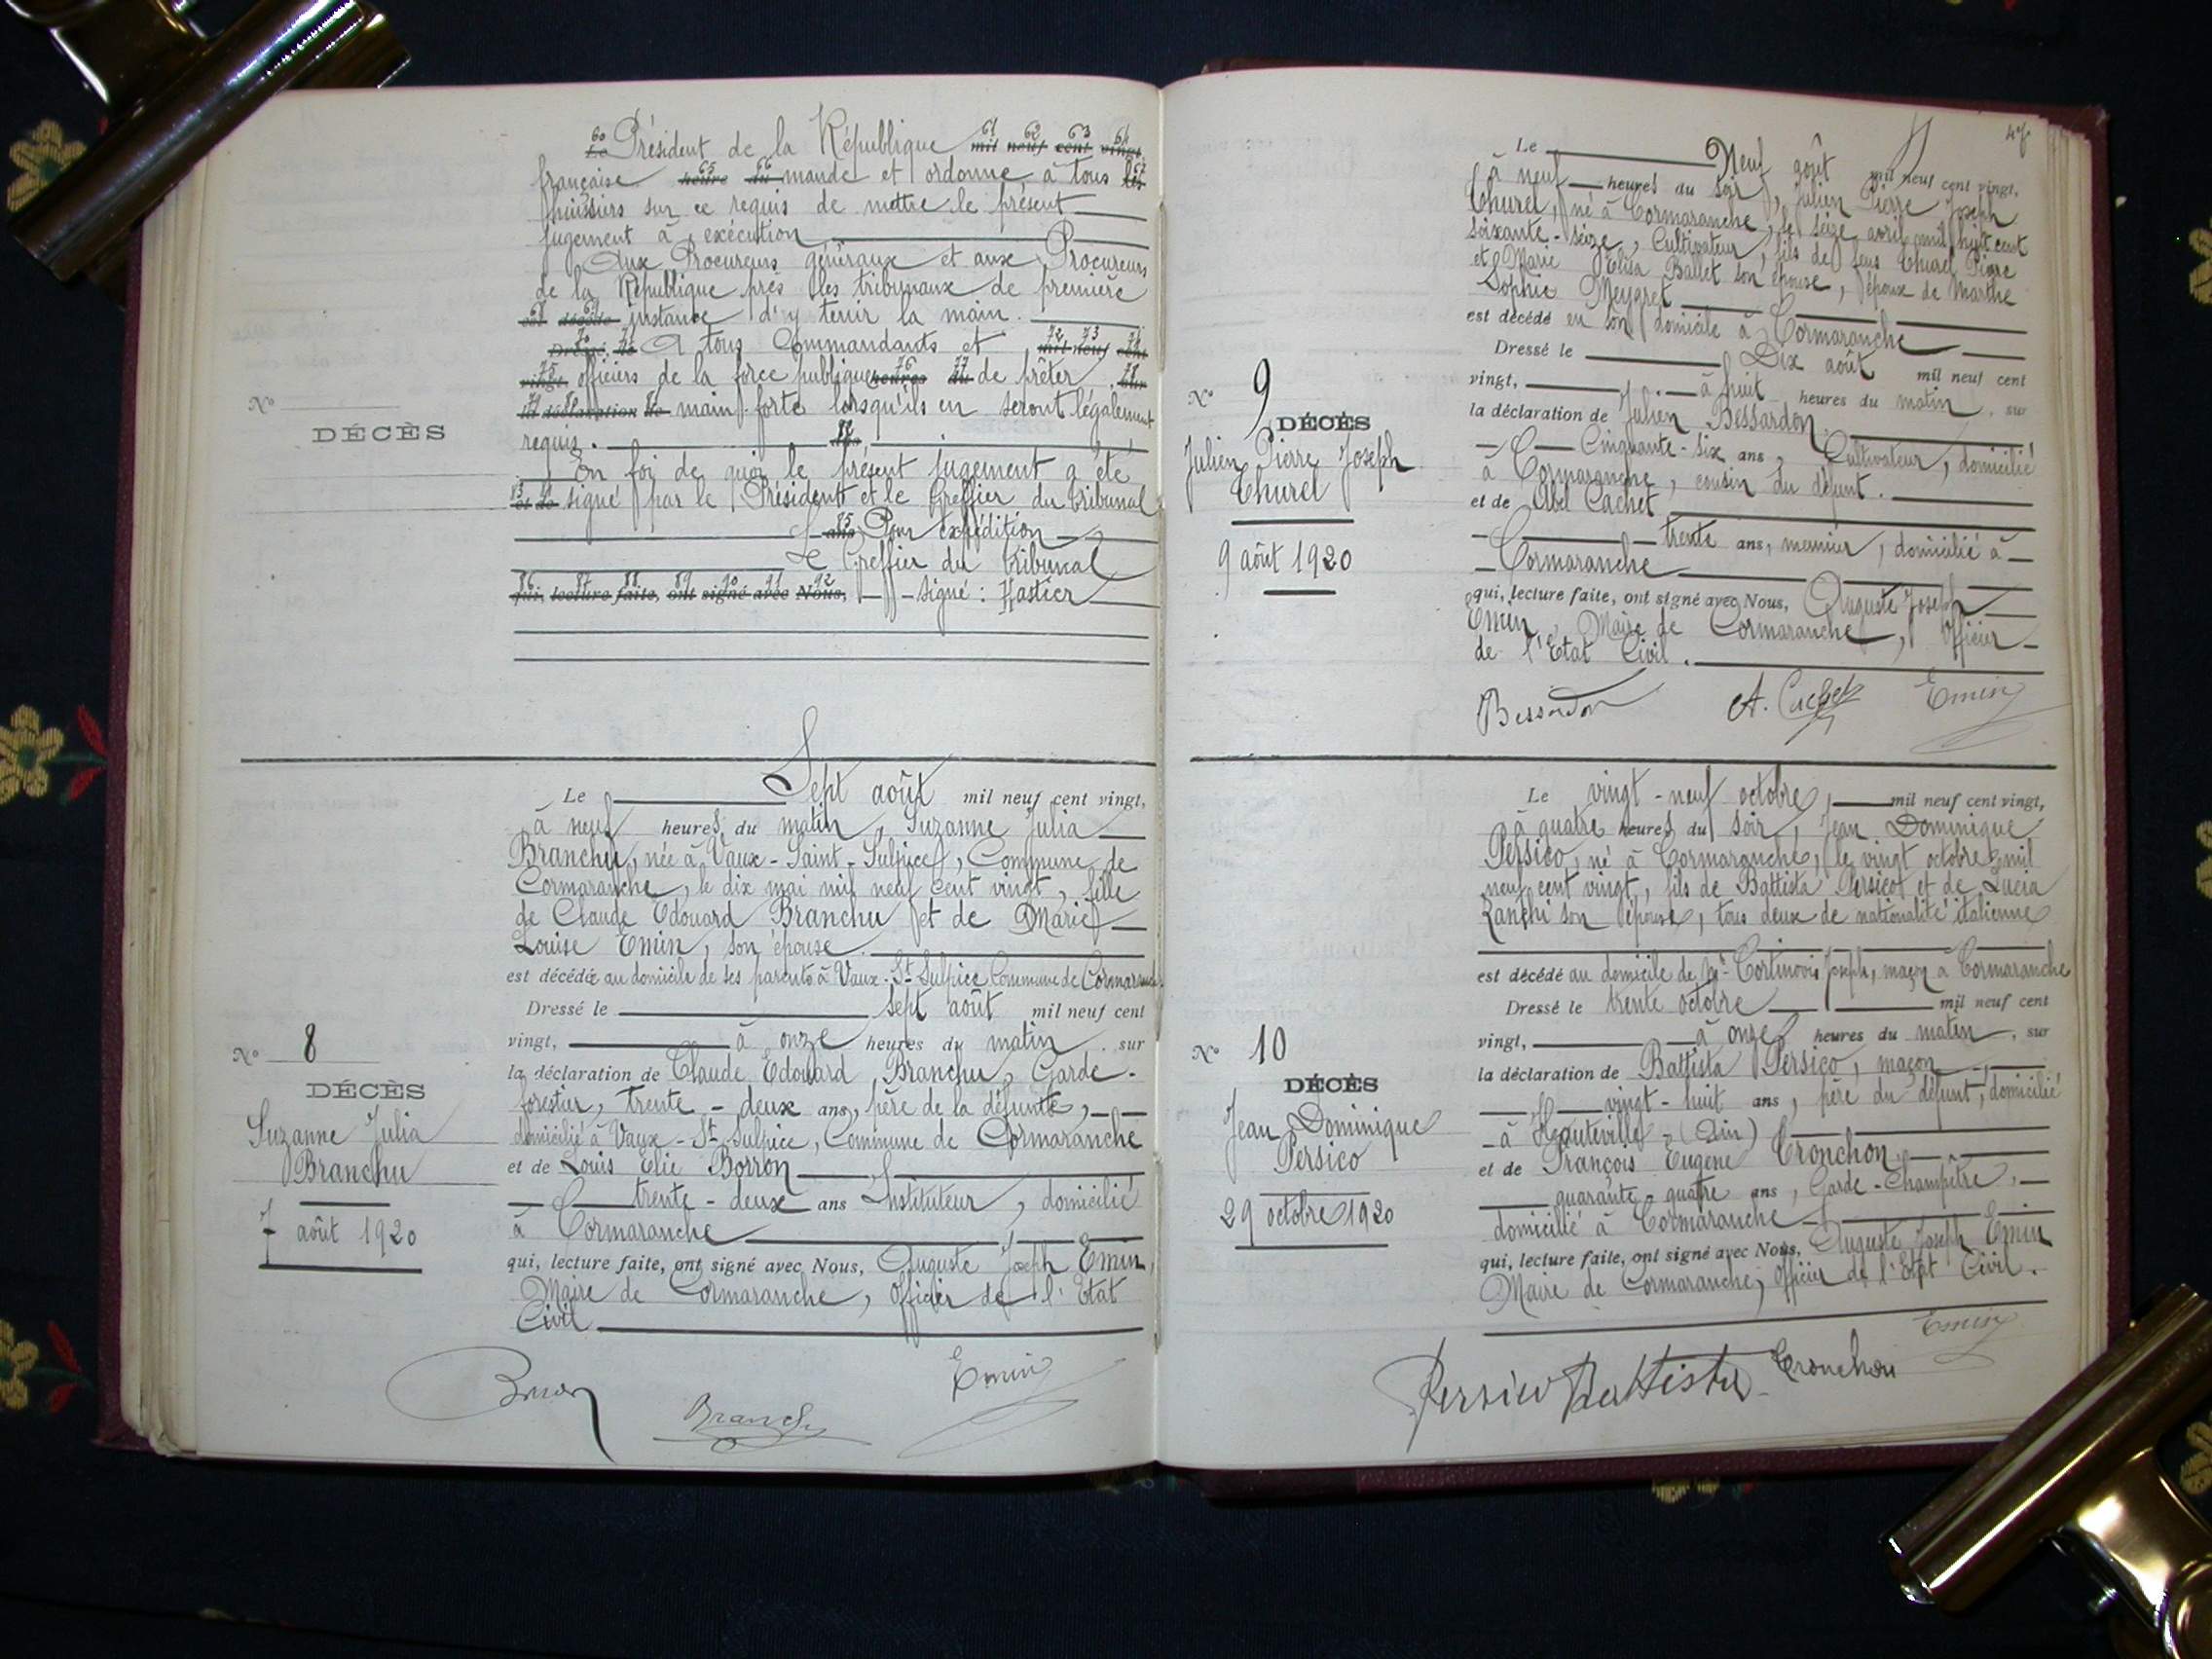 Président de la République
française mande et ordonne, à tous
huissiers sur ce requis de mettre le présent
jugement à exécution
Aux Procureurs généraux et aux Procureurs
de la République près les tribunaux de première
instance d'y tenir la main.
A tous Commandants et
officiers de la force publique de prêter
main forte lorsqu'ils en seront légalement
requis.
En foi de quoi le présent jugement a été
signé par le Président et le Greffier du tribunal
Pour expédition
Le Greffier du tribunal
qui, lecture faite, ont signé avec Nous, signé : Hastier
N°
DÉCÈS
Le Sept août mil neuf cent vingt,
à neuf heures du matin, Suzanne Julia
Branchu, née à Vaux-Saint-Sulpice, Commune de
Cormaranche, le dix mai mil neuf cent vingt, fille
de Claude Edouard Branchu et de Marie
Louise Emin, son épouse.
est décédée au domicile de ses parents à Vaux-St Sulpice Commune de Cormaranche
Dressé le sept août mil neuf cent
vingt, à onze heures du matin, sur
la déclaration de Claude Edouard Branchu, Garde-
forestier, trente-deux ans, père de la défunte,
domicilié à Vaux-St Sulpice, Commune de Cormaranche
et de Louis Elie Borron
trente-deux ans Instituteur, domicilié
à Cormaranche
qui, lecture faite, ont signé avec Nous, Auguste Joseph Emin,
Maire de Cormaranche, Officier de l'Etat
Civil
N° 8
DÉCÈS
Suzanne Julia
Branchu
7 août 1920
Branchu
Emin
47
Le Neuf août mil neuf cent vingt,
à neuf heures du soir, Julien Pierre Joseph
Churel, né à Cormaranche, le seize avril mil huit cent
soixante-seize, Cultivateur, fils de feus Churel Pierre
et Marie Elisa Ballet son épouse, époux de Marthe
Sophie Meygret
est décédé en son domicile à Cormaranche
Dressé le Dix août mil neuf cent
vingt, à huit heures du matin, sur
la déclaration de Julien Bessardon
Cinquante-six ans, Cultivateur, domicilié
à Cormaranche, cousin du défunt.
et de Abel Cachet
trente ans, menuier, domicilié à
Cormaranche
qui, lecture faite, ont signé avec Nous, Auguste Joseph
Emin, Maire de Cormaranche, Officier
de l'Etat Civil.
N° 9
DÉCÈS
Julien Pierre Joseph
Churel
9 août 1920
Bessardon A. Cachet Emin
Le vingt-neuf octobre, mil neuf cent vingt,
à quatre heures du soir, Jean Dominique
Persico, né à Cormaranche, le vingt octobre mil
neuf cent vingt, fils de Battista Persicot et de Lucia
Zanchi son épouse, tous deux de nationalité italienne
est décédé au domicile de Mr Cortinovis Joseph, maçon à Cormaranche
Dressé le trente octobre mil neuf cent
vingt, à onze heures du matin, sur
la déclaration de Battista Persico, maçon
vingt-huit ans, père du défunt, domicilié
à Hauteville-(Ain)
et de François Eugène Cronchon
quarante-quatre ans, Garde-Champêtre,
domicilié à Cormaranche
qui, lecture faite, ont signé avec Nous, Auguste Joseph Emin
Maire de Cormaranche, Officier de l'Etat Civil.
N° 10
DÉCÈS
Jean Dominique
Persico
29 octobre 1920
Emin
Persico Battista Cronchon